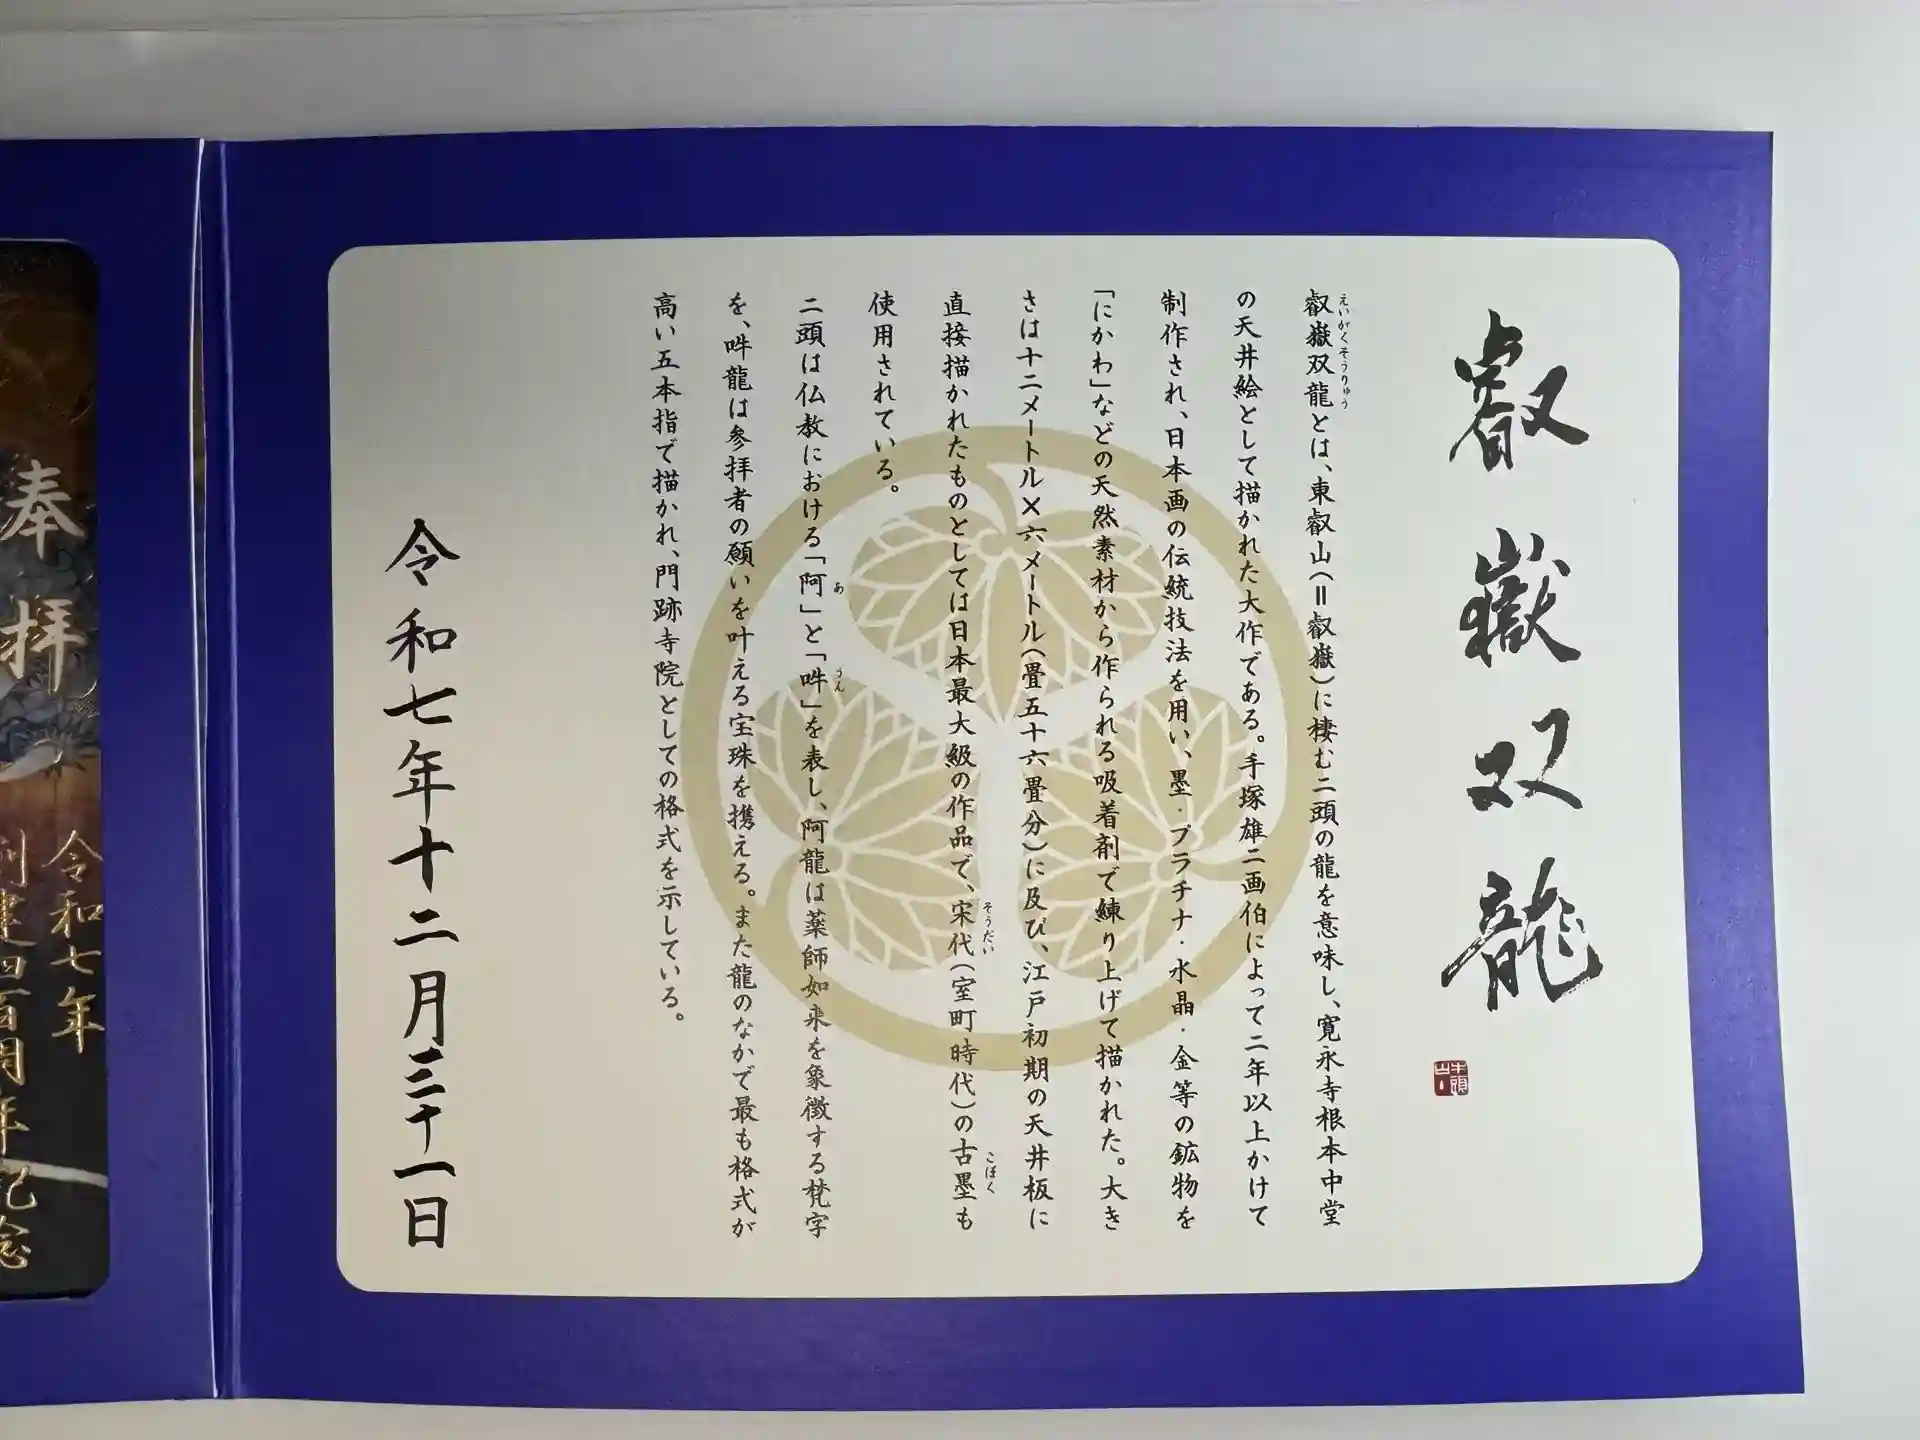 叡嶽双龍
叡嶽双龍とは、東叡山(=叡嶽)に棲む二頭の龍を意味し、寛永寺根本中堂
えいがくそうりゅう
の天井絵として描かれた大作である。手塚雄二画伯によって二年以上かけて
制作され、日本画の伝統技法を用い、墨・プラチナ・水晶・金等の鉱物を
「にかわ」などの天然素材から作られる吸着剤で練り上げて描かれた。大き
さは十二メートル×六メートル(畳五十六畳分)に及び、江戸初期の天井板に
直接描かれたものとしては日本最大級の作品で、宋代(室町時代)の古墨も
そうだい
こぼく
使用されている。
二頭は仏教における「阿」と「吽」を表し、阿龍は薬師如来を象徴する梵字
あ
うん
を、吽龍は参拝者の願いを叶える宝珠を携える。また龍のなかで最も格式が
高い五本指で描かれ、門跡寺院としての格式を示している。
令和七年十二月三十一日
奉拝
令和七年
創建四百周年記念